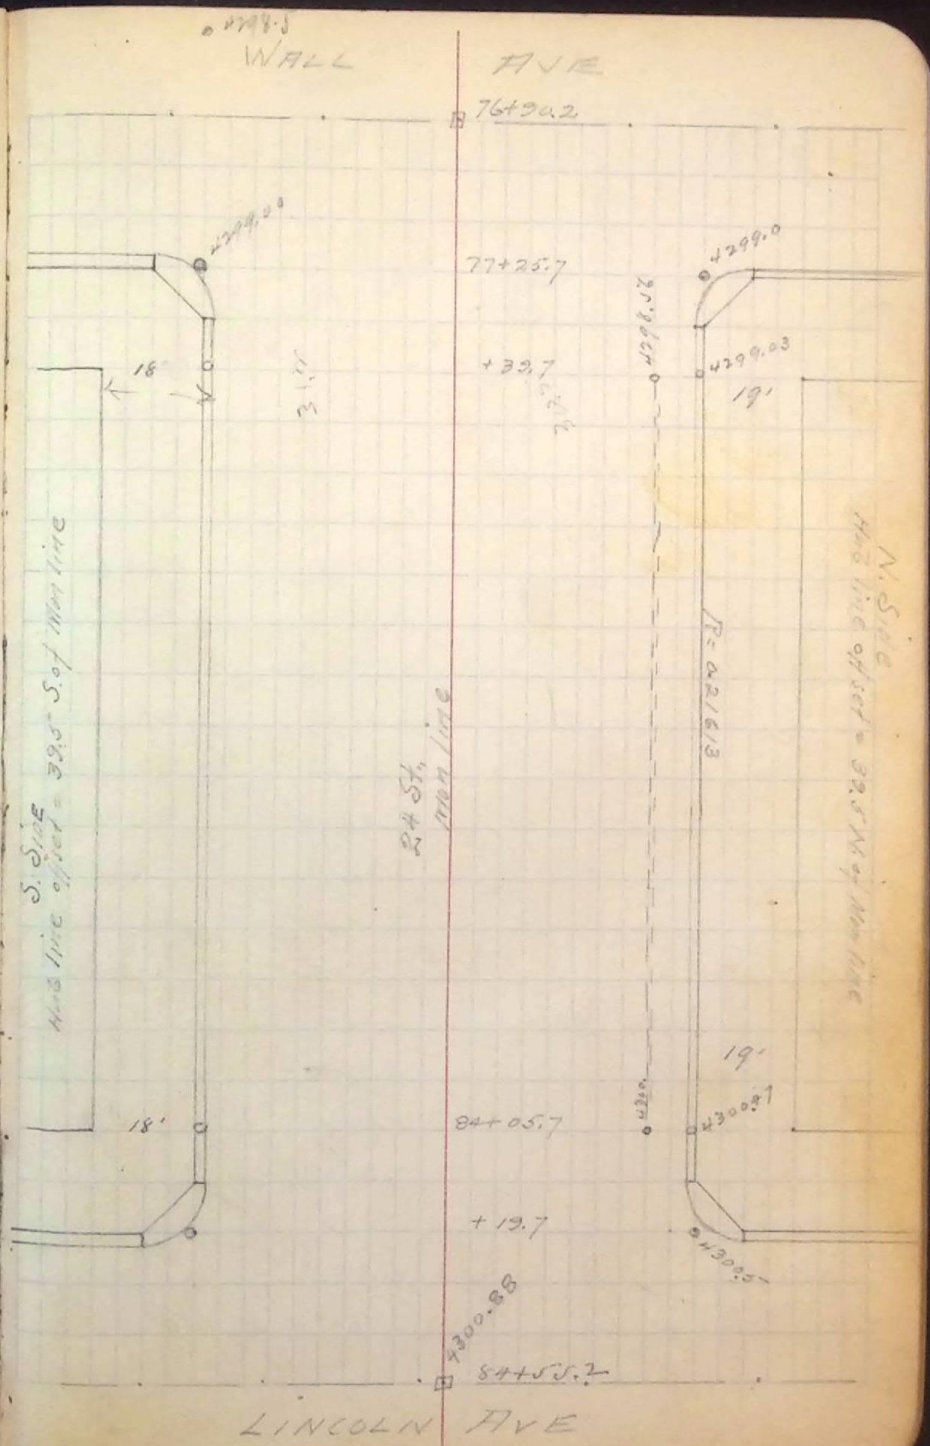 4298.5
WALL AVE
76+90.2
4299.00
77+25.7
4299.0
18'
+39.7
4298.52
4299.03
19'
S. SIDE
Hub line offset = 39.5 S. of Mon line
24 St.
Mon line
R = 0.21613
N. SIDE
Hub line offset = 39.5 N. of Mon line
19'
18'
84+05.7
4300.47
+19.7
4300.5
4300.88
84+55.2
LINCOLN AVE